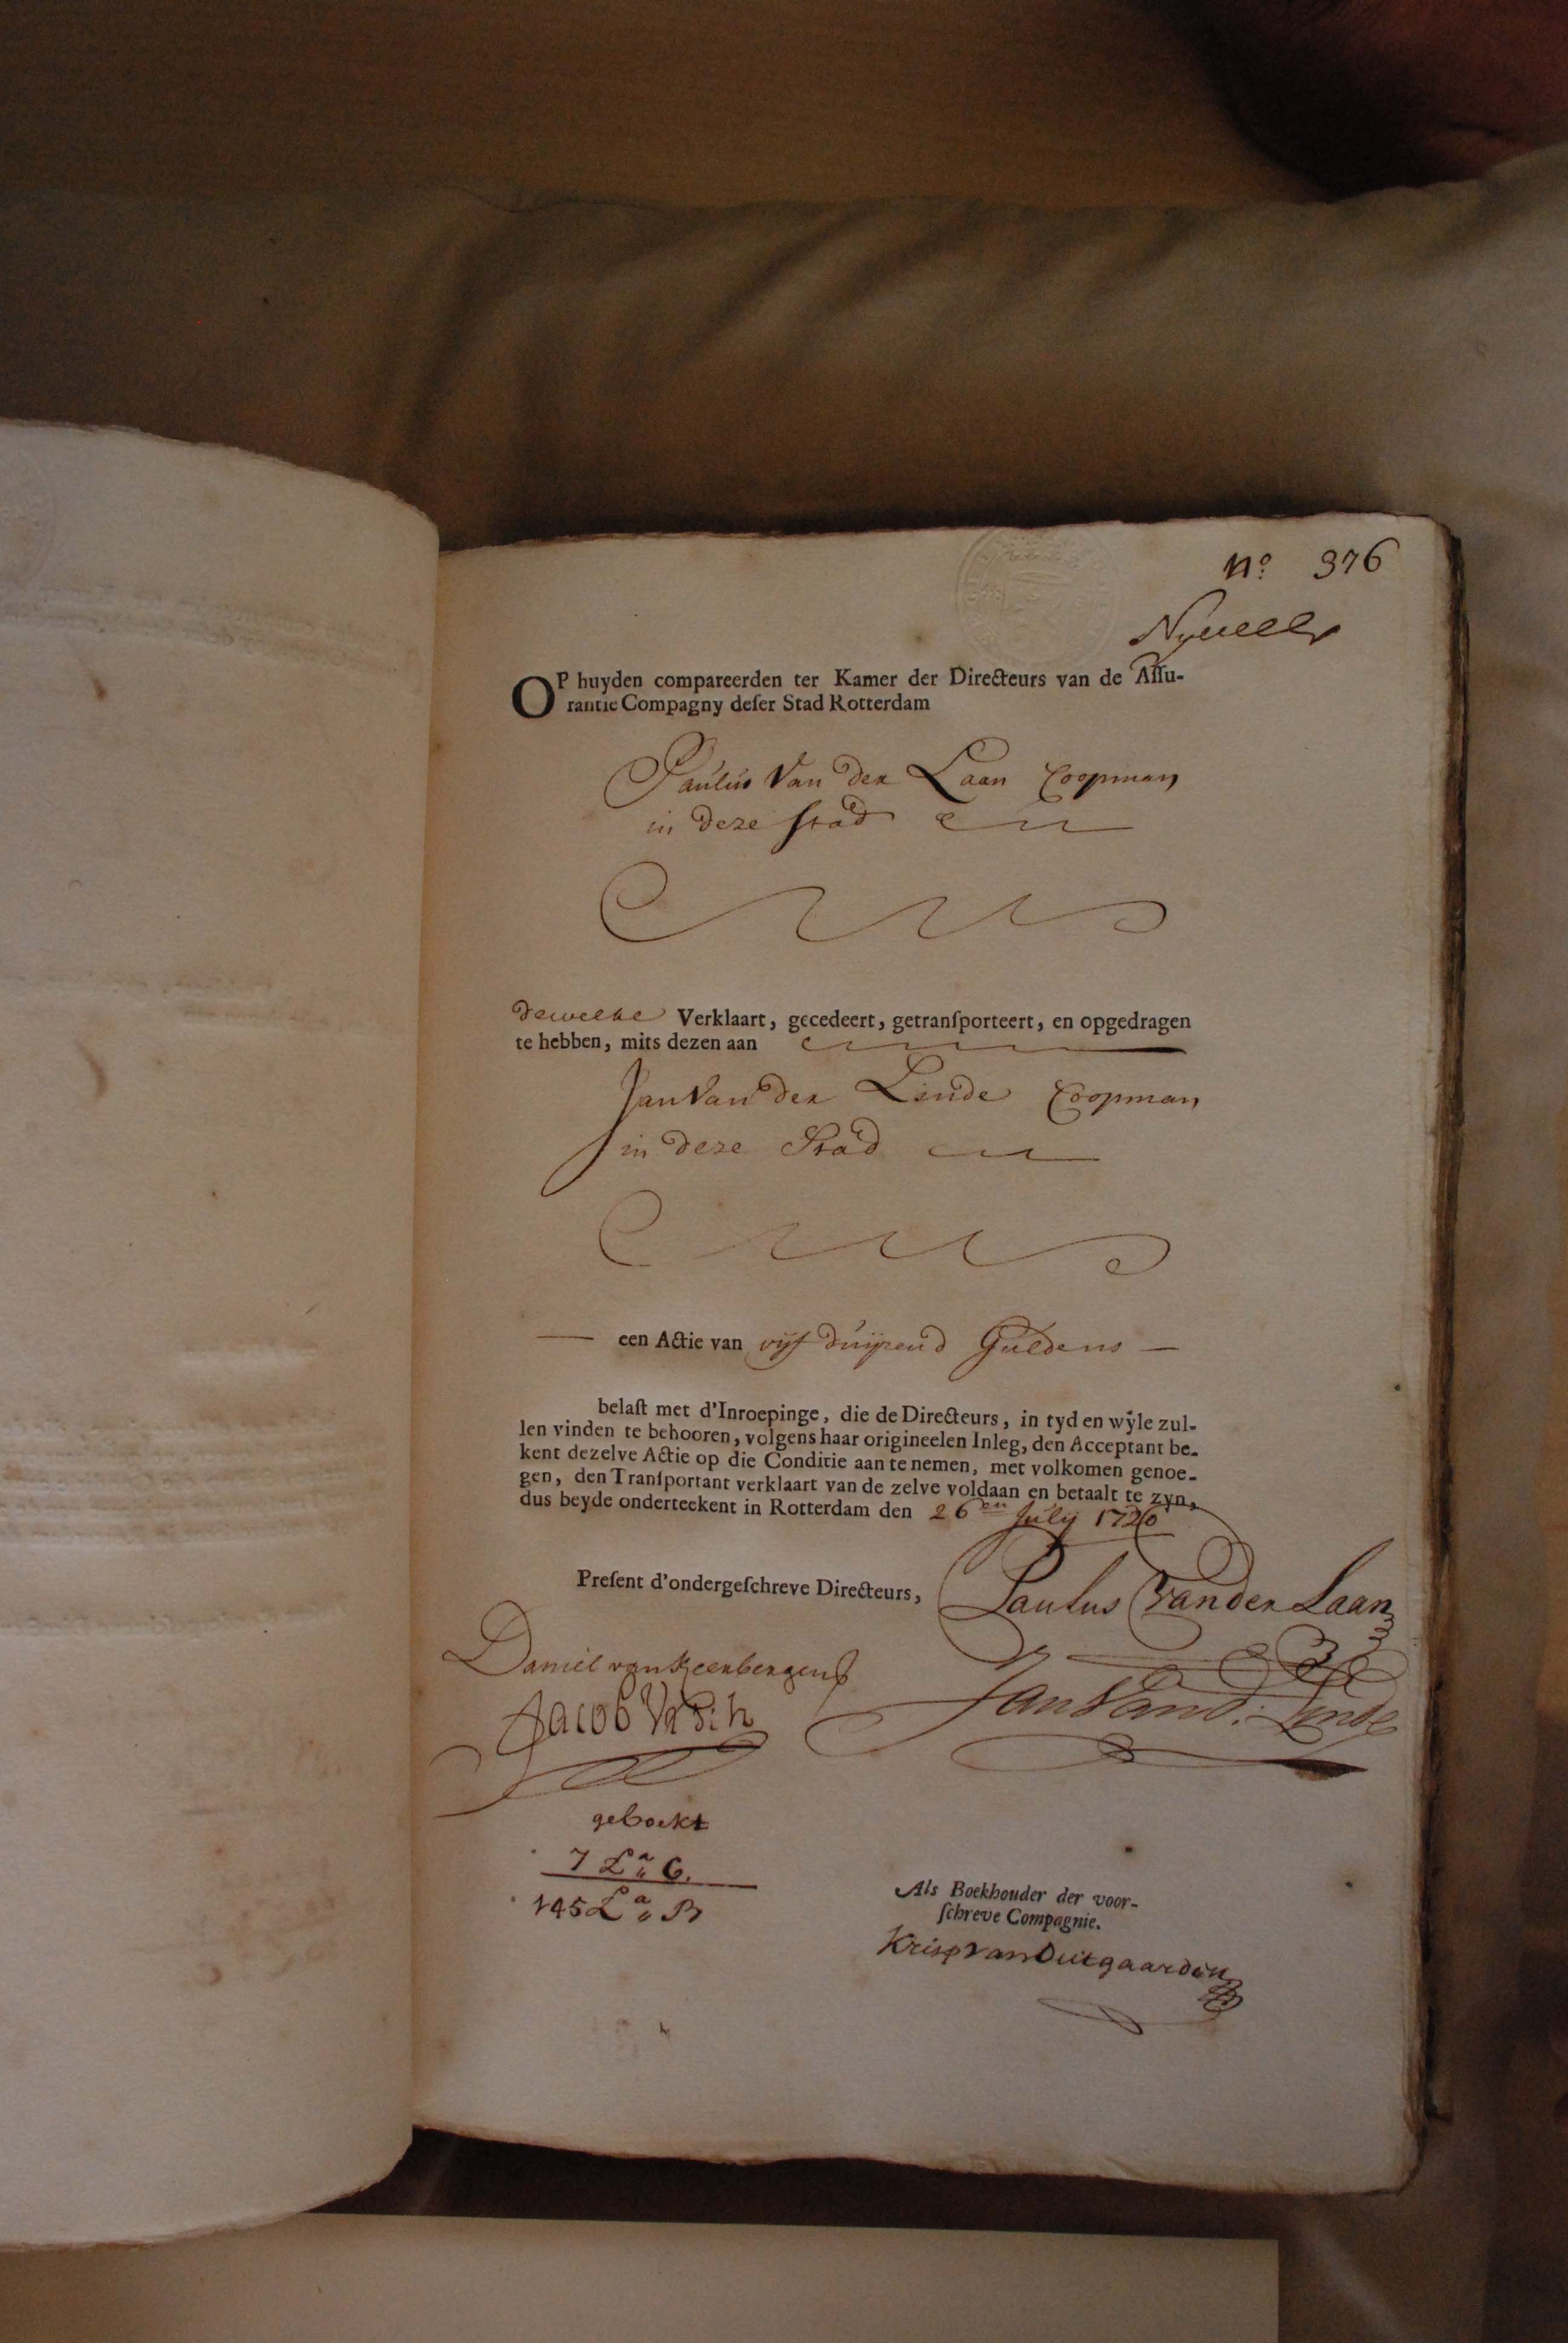 No 376
OP huyden compareerden ter Kamer der Directeurs van de Assu-
rantie Compagny deser Stad Rotterdam
Paulus Van der Laan Coopman
in deze stad
dewelke Verklaart, gecedeert, getransporteert, en opgedragen
te hebben, mits dezen aan
Jan Van der Linde Coopman
in deze Stad
een Actie van vijf duijzend Guldens
belast met d'Inroepinge, die de Directeurs, in tyd en wÿle zul-
len vinden te behooren, volgens haar origineelen Inleg, den Acceptant be-
kent dezelve Actie op die Conditie aan te nemen, met volkomen genoe-
gen, den Transportant verklaart van de zelve voldaan en betaalt te zyn,
dus beyde onderteekent in Rotterdam den 26en July 1720
Present d'ondergeschreve Directeurs,
Paulus Van der Laan
Daniel van
Jan Van d. Linde
Jacob
geboekt
7 La C.
145 La B
Als Boekhouder der voor-
schreve Compagnie.